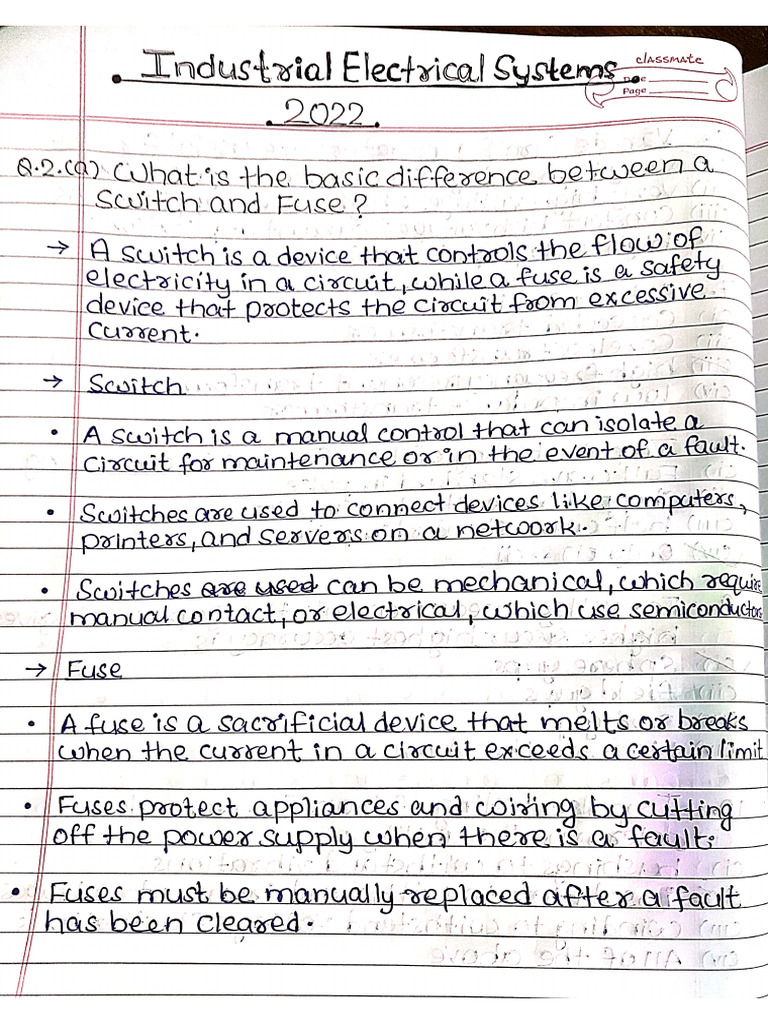 Industrial Electrical Systems.
classmate
Date
Page
2022.
Q.2.(a) What is the basic difference between a
Switch and Fuse?
→ A switch is a device that controls the flow of
electricity in a circuit, while a fuse is a safety
device that protects the circuit from excessive
current.
→ Switch
• A switch is a manual control that can isolate a
circuit for maintenance or in the event of a fault.
• Switches are used to connect devices like computers,
printers, and servers on a network.
• Switches are used can be mechanical, which require
manual contact, or electrical, which use semiconductors
→ Fuse
• A fuse is a sacrificial device that melts or breaks
when the current in a circuit exceeds a certain limit
• Fuses protect appliances and wiring by cutting
off the power supply when there is a fault.
• Fuses must be manually replaced after a fault
has been cleared.